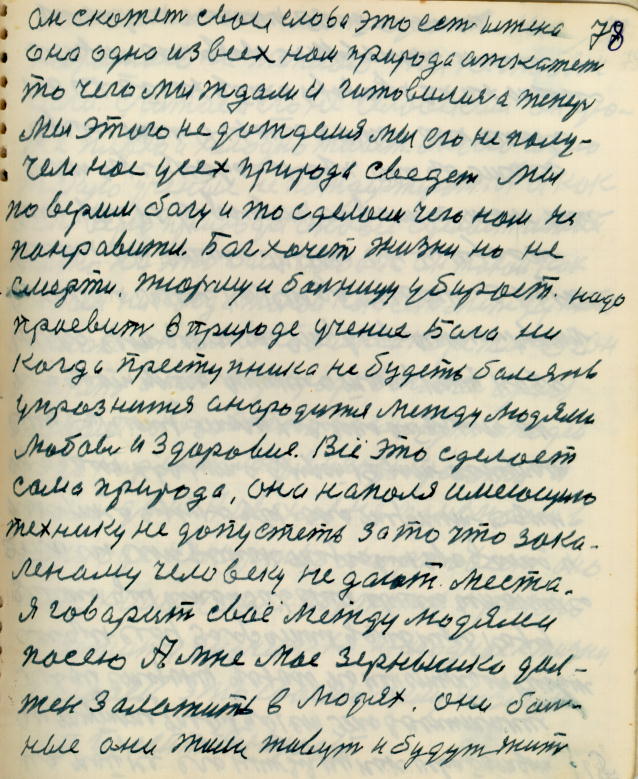 он скажет свои слова это ест штека 78
она одна из всех нам природа откажет
то чего мы ждали и готовился а тепер
мы этого не дождемся мы его не полу-
чем нас усех природа сведет мы
поверим богу и то сделоим чего нам не
понравити. Бог хочет жизни но не
смерти. тюрму и болницу убирает. надо
проевит в природе учение Бога ни
когда преступника не будеть болезнь
упрознится а народится между людями
любовь и здоровие. Всё это сделает
сама природа, она на поля имеющую
технику не допустеть за то что зака-
леному человеку не дают места.
я говарит своё между людями
посею А мне мое зернышко дол-
жен заложить в людях. они бол-
ные они жили живут и будут жит